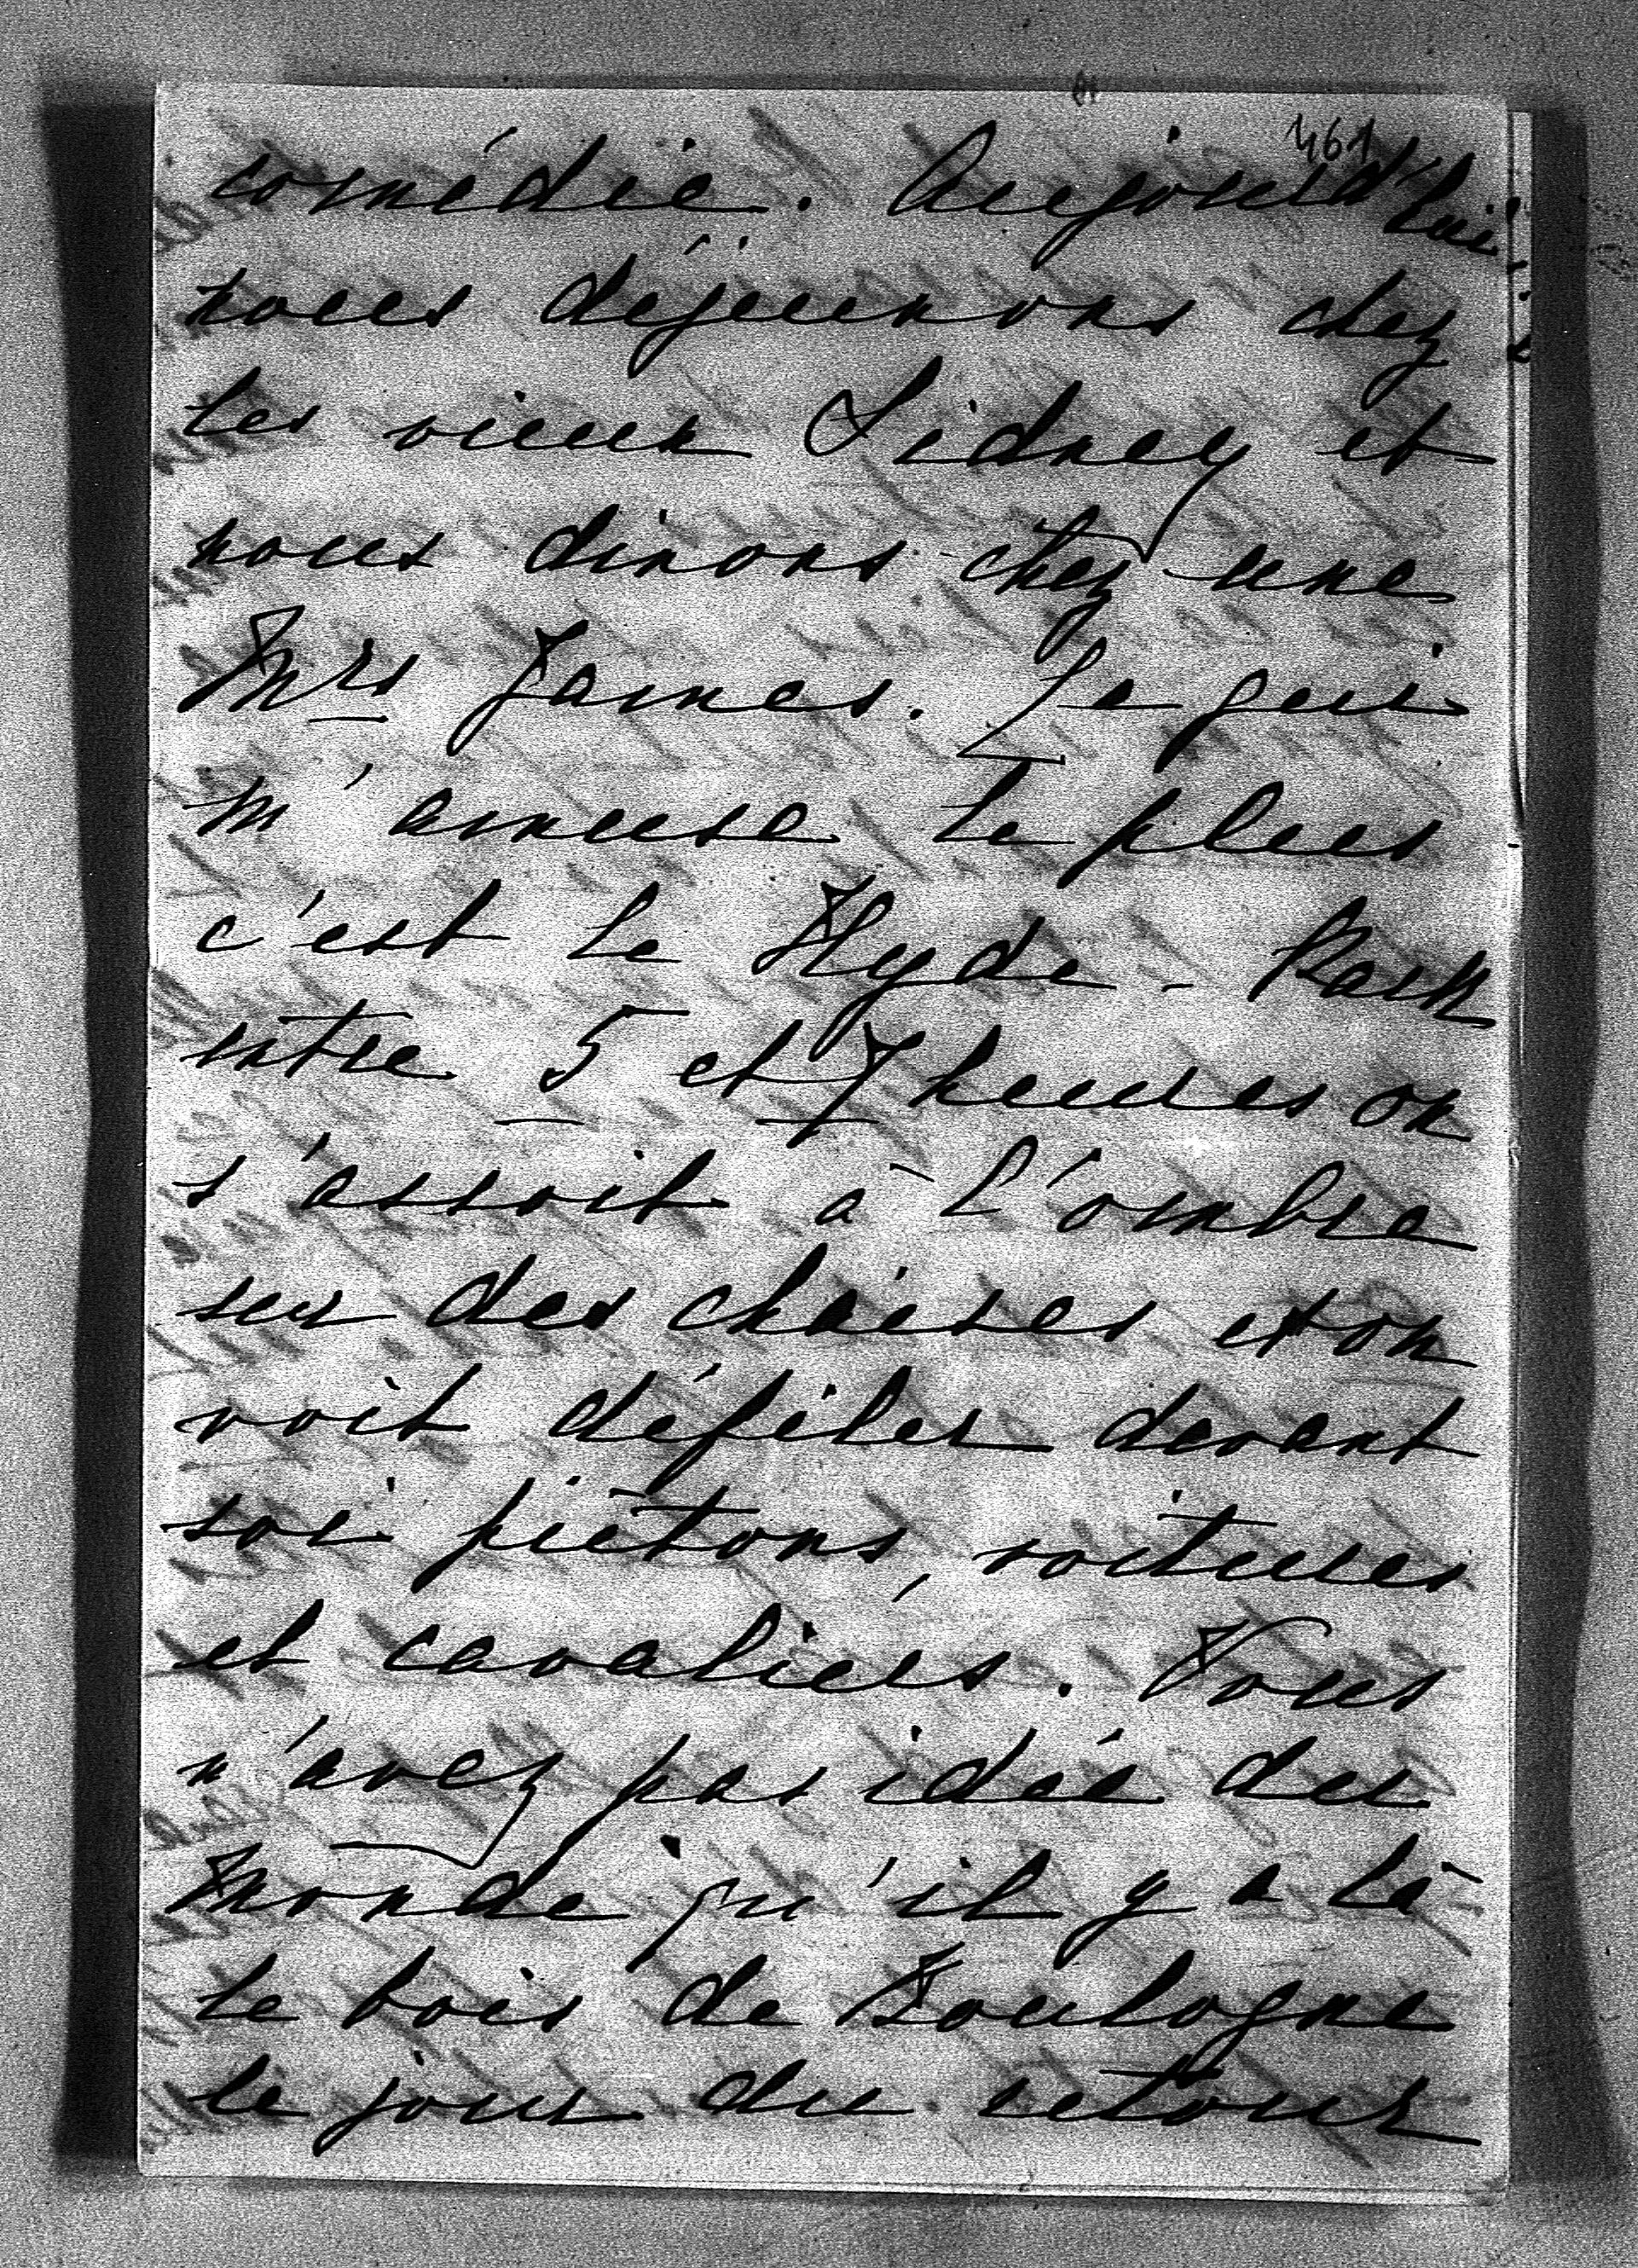 461
comédie. Aujourd'hui
nous déjeunons chez
les vieux Sidney et
nous dinons chez une
Mrs James. Ce qui
m'amuse le plus
c'est le Hyde-Park
entre 5 et 7 heures on
s'assoit à l'ombre
sur des chaises et on
voit défiler devant
soi piétons, voitures
et cavaliers. Vous
n'avez pas idée du
monde qu'il y a là
le bois de Boulogne
le jour du retour